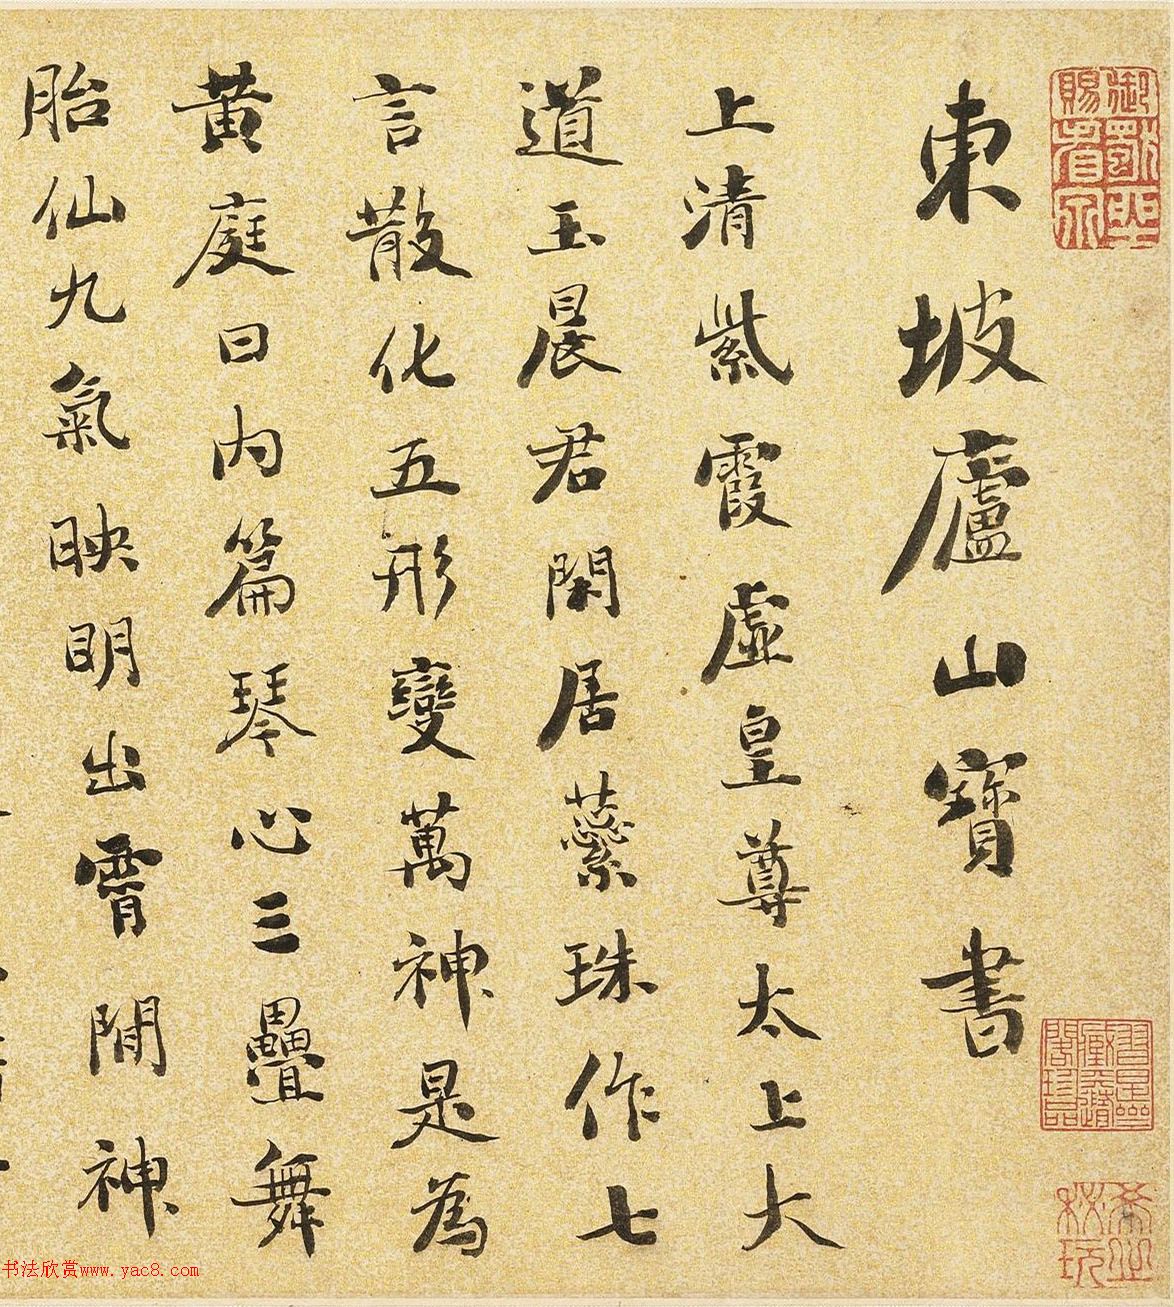 東坡廬山寶書
上清紫霞虚皇尊太上大
道玉晨君閑居蘂珠作七
言散化五形變萬神是為
黄庭曰内篇琴心三疊舞
胎仙九氣映明出霄間神
书法欣赏www.yac8.com